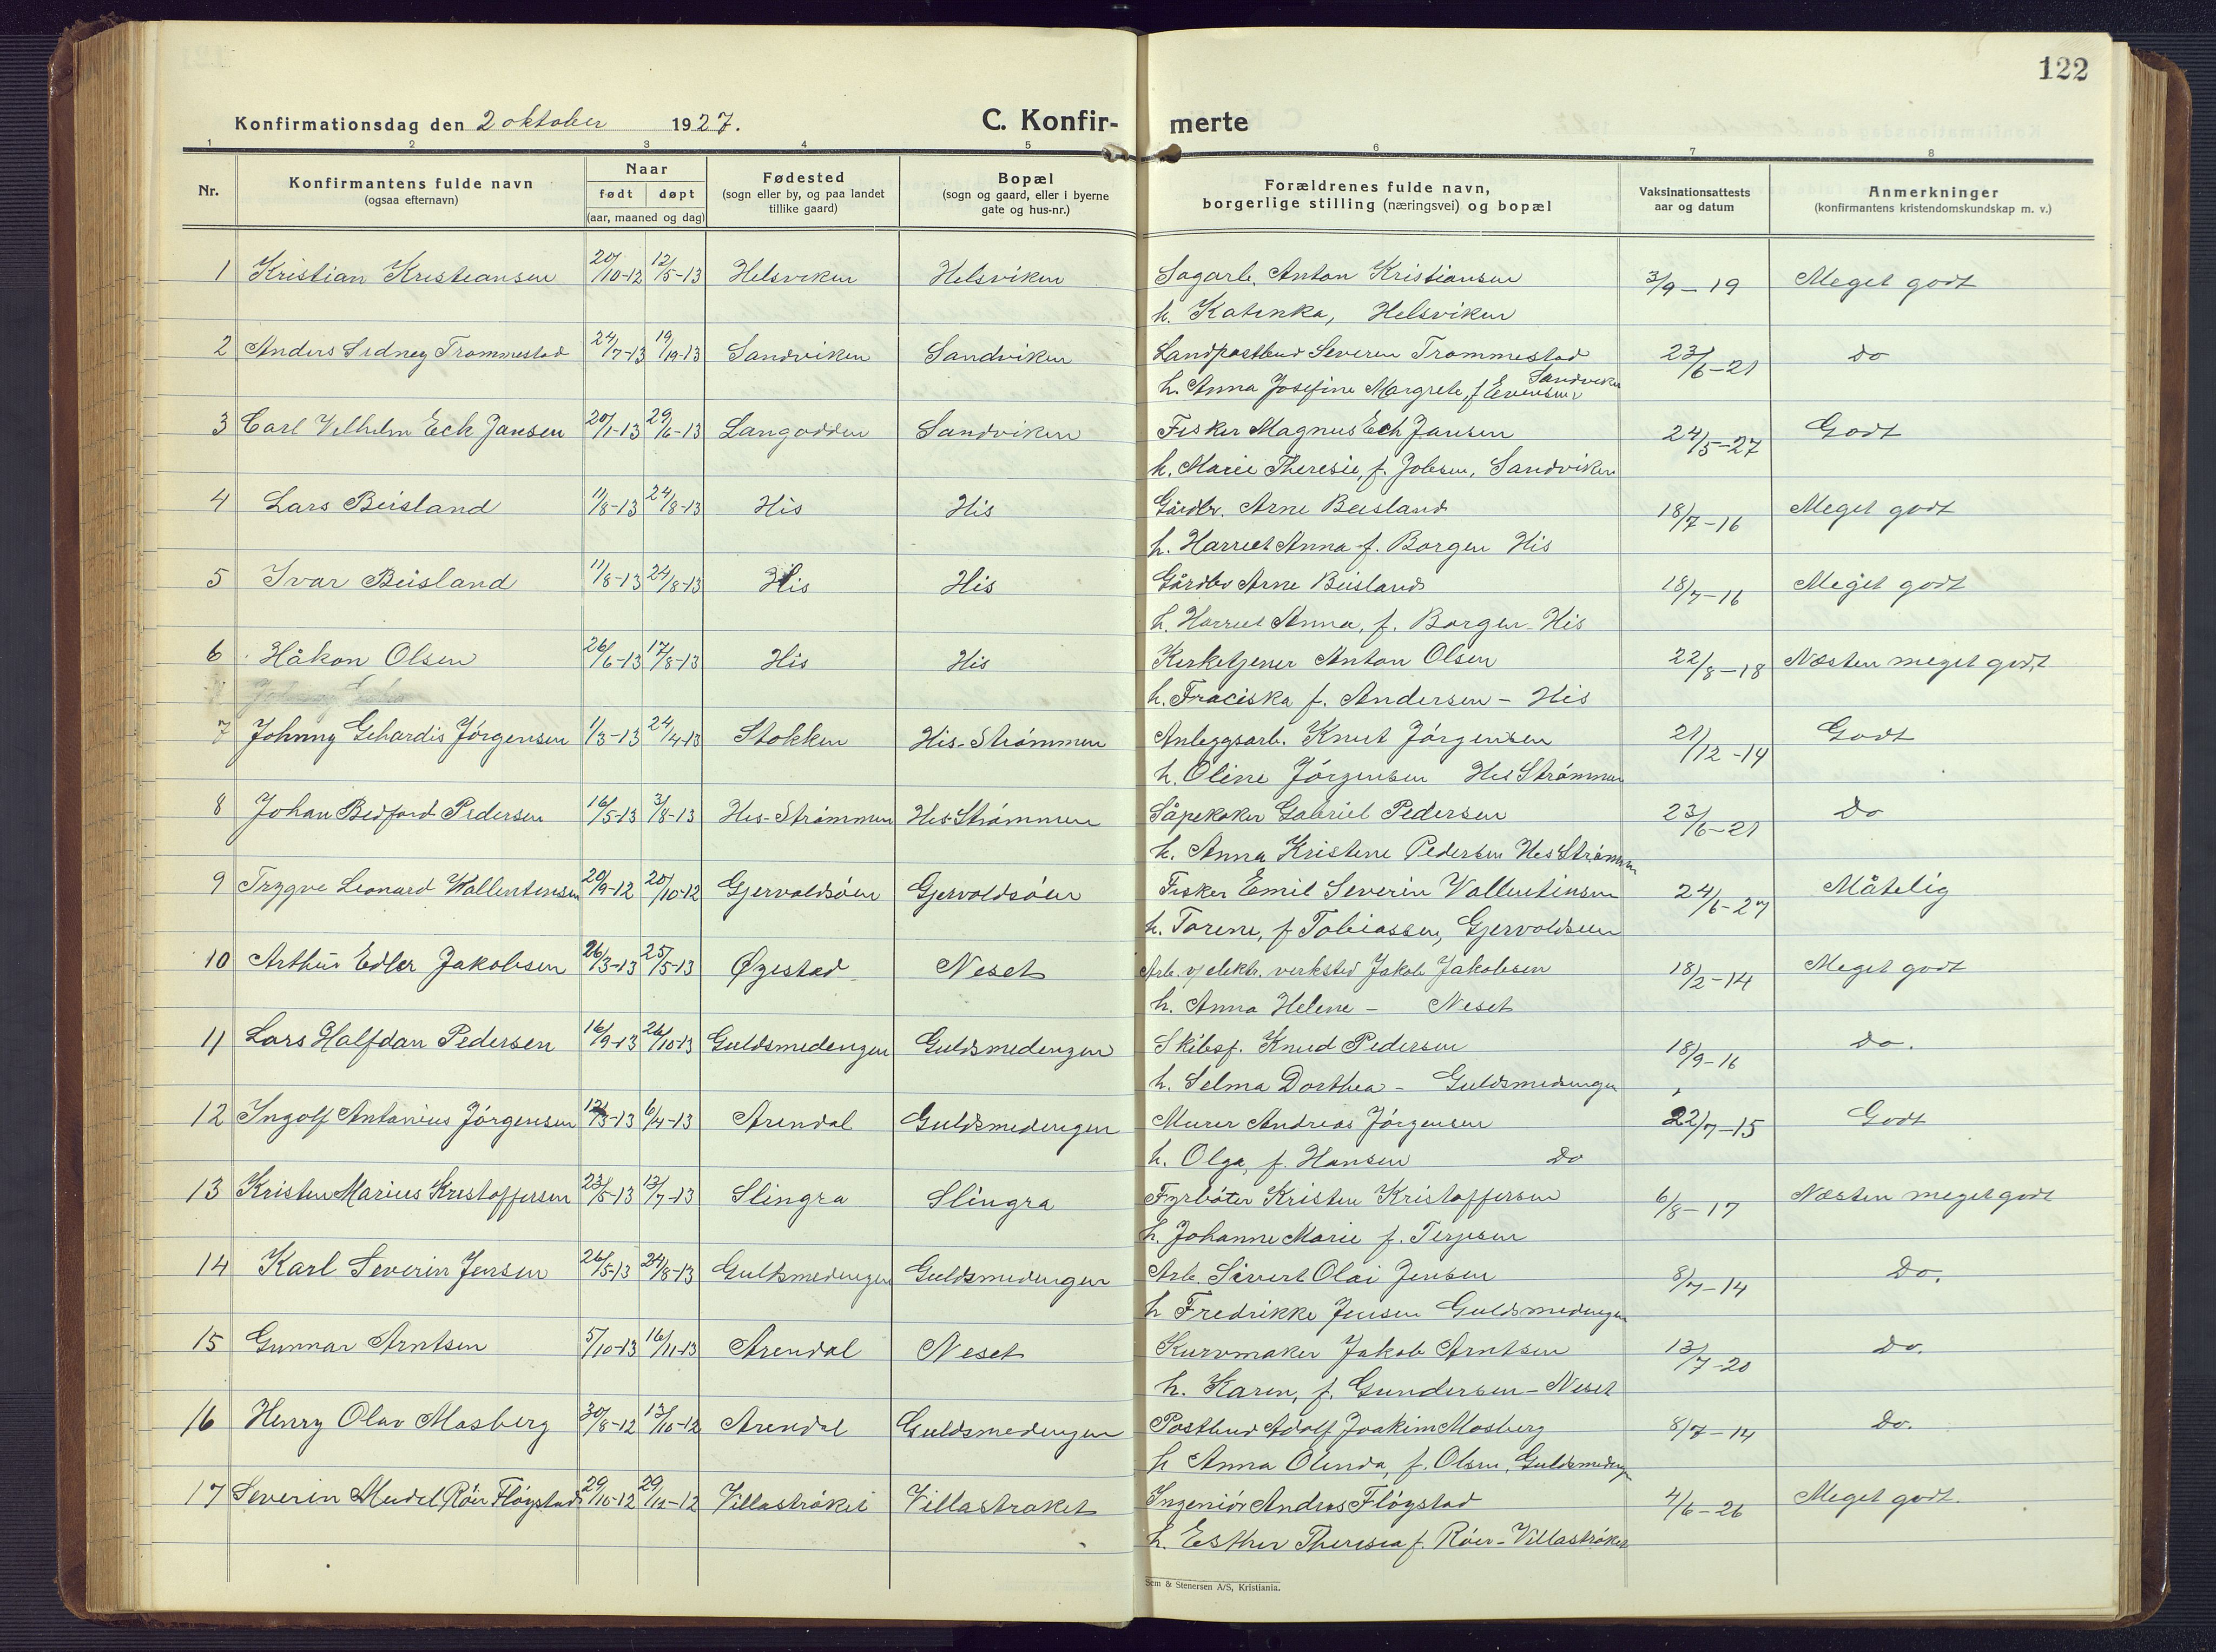 122
Konfirmationsdag den 2 oktober 1927.
C. Konfir- merte
1 2 3 4 5 6 7 8
Nr.
Konfirmantens fulde navn
(ogsaa efternavn)
Naar
født døpt
(aar, maaned og dag)
Fødested
(sogn eller by, og paa landet
tillike gaard)
Bopæl
(sogn og gaard, eller i byerne
gate og hus-nr.)
Forældrenes fulde navn,
borgerlige stilling (næringsvei) og bopæl
Vaksinationsattests
aar og datum
Anmerkninger
(konfirmantens kristendomskundskap m. v.)
1 Kristian Kristiansen 20/10-12 12/5-13 Helsviken Helsviken Sagarb. Anton Kristiansen 3/9-19 Meget godt
h. Katinka, Helsviken
2 Anders Sidney Trommestad 24/7-13 Sandviken Sandviken Landpostbud Severin Trommestad 23/6-21 do
h. Anna Josefine Margrete, f Evensen Sandviken
3 Carl Vilhelm Eck Jansen 20/1-13 29/6-13 Langodden Sandviken Fisker Magnus Eck Jansen 24/5-27 Godt
h. Marie Theresie, f. Jobsen, Sandviken
4 Lars Beisland 11/8-13 24/8-13 His His Gårdbr. Arne Beisland 18/7-16 Meget godt
h. Harriet Anna f. Borgen His
5 Ivar Beisland 11/8-13 24/8-13 His His Gårdbr Arne Beisland 18/7-16 Meget godt
h. Harriet Anna, f. Borgen - His
6 Håkon Olsen 26/6-13 17/8-13 His His Kirketjener Anton Olsen 22/8-18 Næsten meget godt
h. Fraciska f. Andersen - His
7 Johnny Gehardis Jörgensen 1/3-13 24/4-13 Stokken His-Strömmen Anleggsarb. Knut Jörgensen 21/12-14 Godt
h. Oline Jörgensen His Strömmen
8 Johan Bedford Pedersen 16/5-13 3/8-13 His-Strömmen His Strömmen Såpekoker Gabriel Pedersen 23/6-21 Do
h. Anna Kristine Pedersen His Strömmen
9 Trygve Leonard Vallentinsen 20/9-12 20/10-12 Gjervoldsöen Gjervoldsöen Fisker Emil Severin Vallentinsen 24/6-27 Måtelig
h. Torine, f Tobiassen, Gjervoldsen
10 Arthur Edler Jakobsen 26/3-13 25/5-13 Øyestad Neset Arb. v/ elektr. verksted Jakob Jakobsen 18/2-14 Meget godt
h. Anna Helene - Neset
11 Lars Halfdan Pedersen 16/9-13 26/10-13 Guldsmedengen Guldsmedengen Skibsf. Knud Pedersen 18/9-16 do.
h. Selma Dorthea - Guldsmedengen
12 Ingolf Antonius Jörgensen 6/4-13 Arendal Guldsmedengen Murer Andreas Jörgensen 22/7-15 Godt
h. Olga, f. Hansen Do
13 Kristen Marius Kristoffersen 23/5-13 13/7-13 Slingra Slingra Fyrböter Kristen Kristoffersen 6/8-17 Næsten meget godt
h. Johanne Marie f. Terjesen
14 Karl Severin Jensen 26/5-13 24/8-13 Guldsmedengen Guldsmedengen Arb. Sivert Olai Jensen 8/7-14 Do.
h Fredrikke Jensen Guldsmedengen
15 Gunnar Arntsen 5/10-13 16/11-13 Arendal Neset Kurvmaker Jakob Arntsen 13/7-20 Do.
h. Karen, f. Gundersen - Neset
16 Henry Olav Mosberg 30/8-12 13/10-12 Arendal Guldsmedengen Postbud Adolf Joakim Mosberg 8/7-14 Do.
h Anna Olinda, f. Olsen, Guldsmedeng
17 Severin Meidel Röer Flöystad 29/10-12 29/12-12 Villaströket Villastraket Ingeniör Andres Flöystad 4/6-26 Meget godt.
h. Esther Theresia f. Röer - Villaströket
Sem & Stenersen A/S, Kristiania.